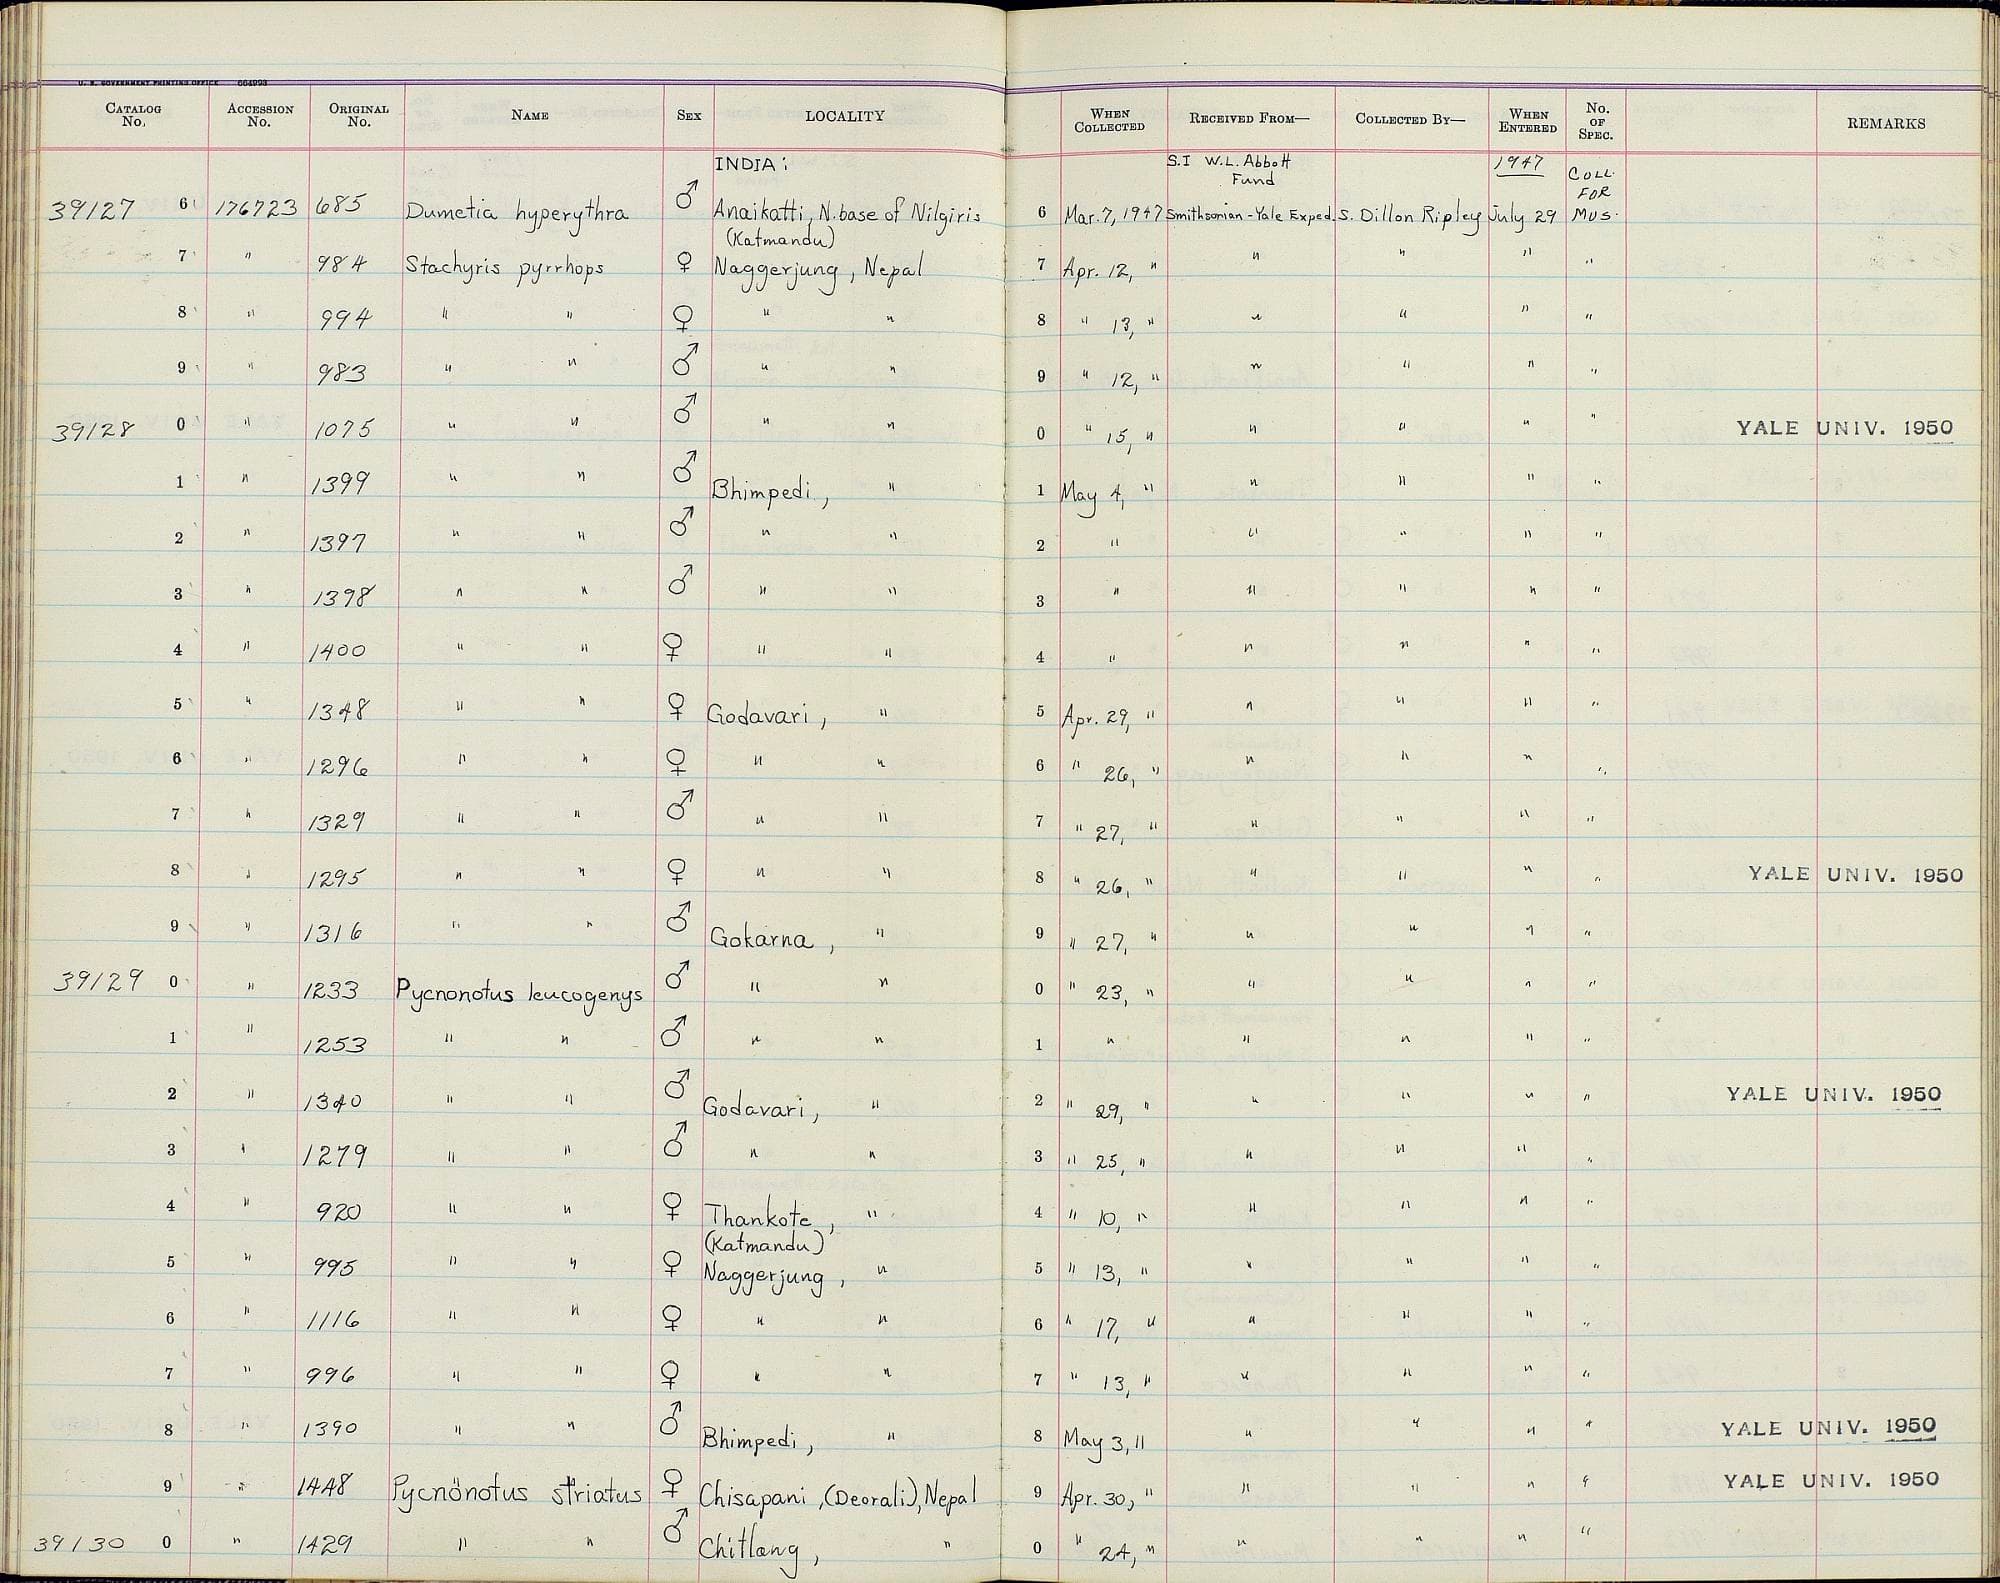 U. S. GOVERNMENT PRINTING OFFICE 664993
CATALOG No. ACCESSION No. ORIGINAL No. NAME SEX LOCALITY WHEN COLLECTED RECEIVED FROM— COLLECTED BY— WHEN ENTERED No. OF SPEC. REMARKS
INDIA: S.I W.L. Abbott Fund 1947 COLL. FOR MUS.
39127 6 176723 685 Dumetia hyperythra ♂ Anaikatti, N. base of Nilgiris 6 Mar. 7, 1947 Smithsonian-Yale Exped. S. Dillon Ripley July 29
(Katmandu)
7 " 984 Stachyris pyrrhops ♀ Naggerjung, Nepal 7 Apr. 12, " " " " "
8 " 994 " " ♀ " " 8 " 13, " " " " "
9 " 983 " " ♂ " " 9 " 12, " " " " "
39128 0 " 1075 " " ♂ " " 0 " 15, " " " " " YALE UNIV. 1950
1 " 1399 " " ♂ Bhimpedi, " 1 May 4, " " " " "
2 " 1397 " " ♂ " " 2 " " " " "
3 " 1398 " " ♂ " " 3 " " " " "
4 " 1400 " " ♀ " " 4 " " " " "
5 " 1348 " " ♀ Godavari, " 5 Apr. 29, " " " " "
6 " 1296 " " ♀ " " 6 " 26, " " " " "
7 " 1329 " " ♂ " " 7 " 27, " " " " "
8 " 1295 " " ♀ " " 8 " 26, " " " " " YALE UNIV. 1950
9 " 1316 " " ♂ Gokarna, " 9 " 27, " " " " "
39129 0 " 1233 Pycnonotus leucogenys ♂ " " 0 " 23, " " " " "
1 " 1253 " " ♂ " " 1 " " " " "
2 " 1340 " " ♂ Godavari, " 2 " 29, " " " " " YALE UNIV. 1950
3 " 1279 " " ♂ " " 3 " 25, " " " " "
4 " 920 " " ♀ Thankote, " 4 " 10, " " " " "
(Katmandu)
5 " 995 " " ♀ Naggerjung, " 5 " 13, " " " " "
6 " 1116 " " ♀ " " 6 " 17, " " " " "
7 " 996 " " ♀ " " 7 " 13, " " " " "
8 " 1390 " " ♂ Bhimpedi, " 8 May 3, " " " " " YALE UNIV. 1950
9 " 1448 Pycnonotus striatus ♀ Chisapani, (Deorali), Nepal 9 Apr. 30, " " " " " YALE UNIV. 1950
39130 0 " 1429 " " ♂ Chitlang, " 0 " 24, " " " " "